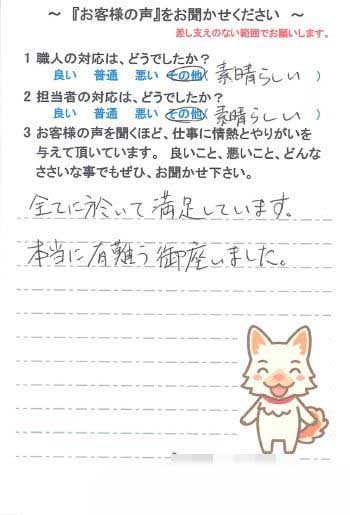 ～ 『お客様の声』をお聞かせください ～
差し支えのない範囲でお願いします。
1 職人の対応は、どうでしたか?
良い 普通 悪い その他( 素晴らしい )
2 担当者の対応は、どうでしたか?
良い 普通 悪い その他( 素晴らしい )
3 お客様の声を聞くほど、仕事に情熱とやりがいを
与えて頂いています。 良いこと、悪いこと、どんな
ささいな事でもぜひ、お聞かせ下さい。
全てに於いて満足しています。
本当に有難う御座いました。